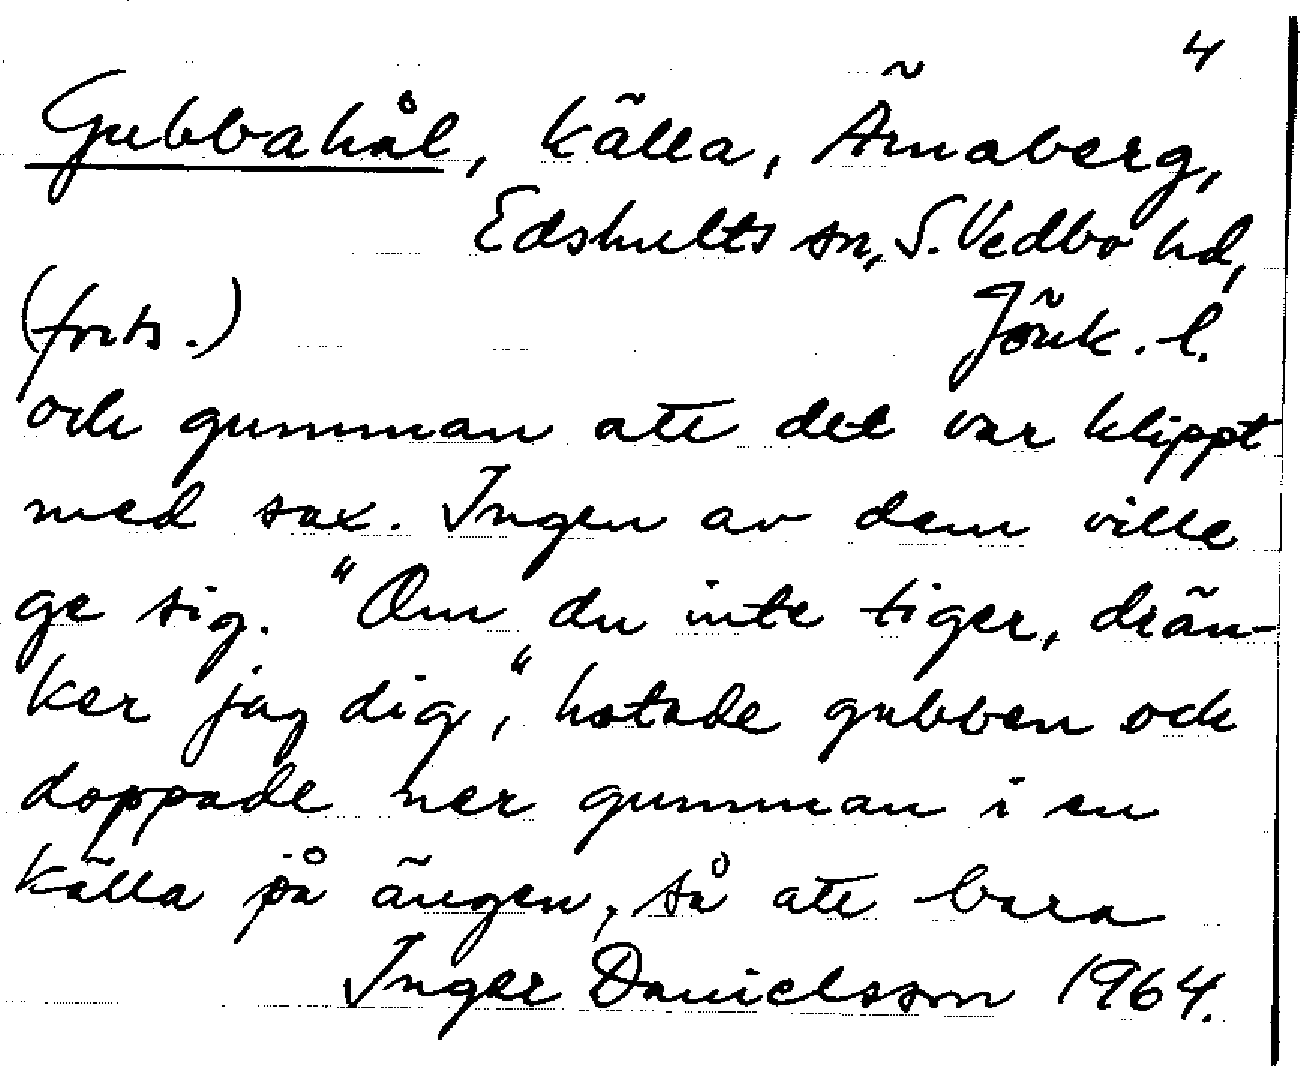 4
Gubbahål, källa, Ärnaberg,
Edshults sn, S. Vedbo hd,
(forts.) Jönk. l.
och gumman att det var klippt
med sax. Ingen av dem ville
ge sig. "Om du inte tiger, drän-
ker jag dig", hotade gubben och
doppade ner gumman i en
källa på ängen, så att bara
Inger Danielsson 1964.